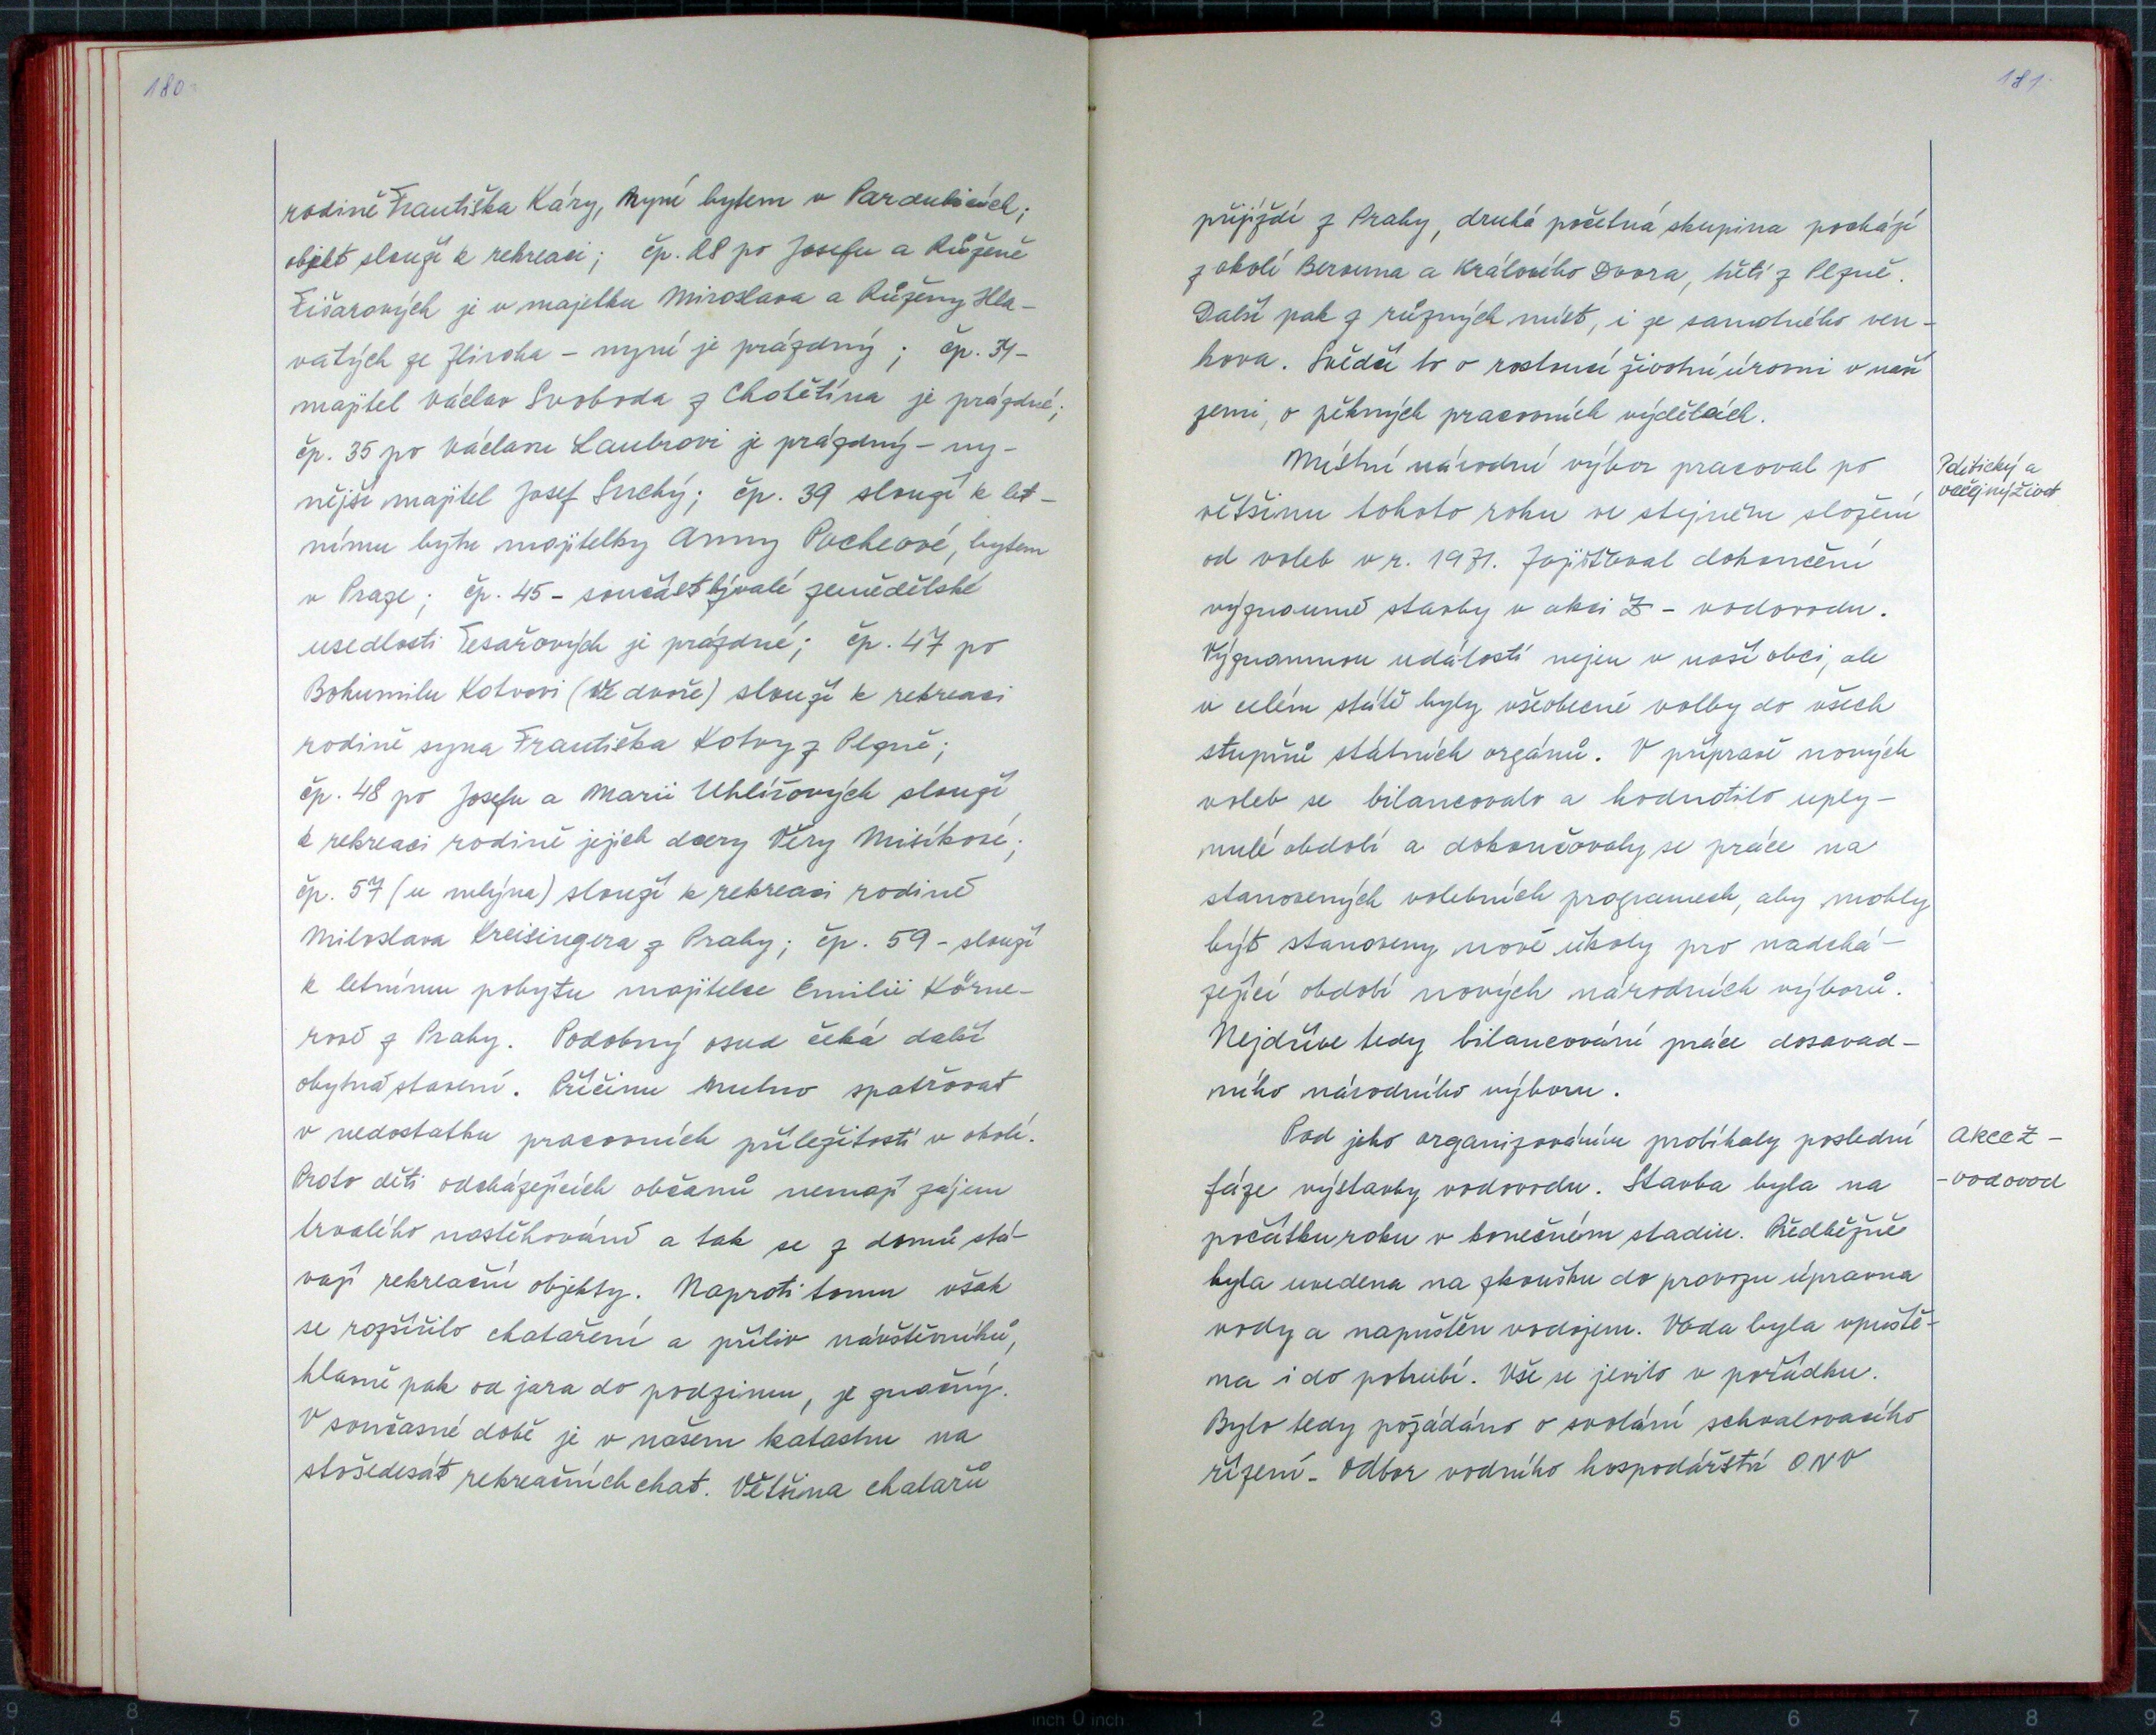 180
rodině Františka Káry, nyní bytem v Pardubicích;
objekt slouží k rekreaci; čp. 28 po Josefu a Růženě
Fišarových je v majetku Miroslava a Růženy Hla-
vatých ze Zbiroha - nyní je prázdný; čp. 34 -
majitel Václav Svoboda z Chotětína je prázdné;
čp. 35 po Václavu Laubrovi je prázdný - ny-
nější majitel Josef Suchý; čp. 39 slouží k let-
nímu bytu majitelky Anny Pocheové, bytem
v Praze; čp. 45 - součást bývalé zemědělské
usedlosti Tesařových je prázdné; čp. 47 po
Bohumilu Kotvovi (Ve dvoře) slouží k rekreaci
rodině syna Františka Kotvy z Plzně;
čp. 48 po Josefu a Marii Uhlířových slouží
k rekreaci rodině jejich dcery Věry Misíkové;
čp. 57 (u mlýna) slouží k rekreaci rodině
Miloslava Kreisingera z Prahy; čp. 59 - slouží
k letnímu pobytu majitelce Emilii Körne-
rové z Prahy. Podobný osud čeká další
obytná stavení. Příčinu nutno spatřovat
v nedostatku pracovních příležitostí v okolí.
Proto děti odcházejících občanů nemají zájem
trvalého nastěhování a tak se z domů stá-
vají rekreační objekty. Naproti tomu však
se rozšířilo chataření a příliv návštěvníků,
hlavně pak od jara do podzimu, je značný.
V současné době je v našem katastru na
stošedesát rekreačních chat. Většina chatařů
181
přijíždí z Prahy, druhá početná skupina pochází
z okolí Berouna a Králového Dvora, třetí z Plzně.
Další pak z různých míst, i ze samotného ven-
kova. Svědčí to o rostoucí životní úrovni v naší
zemi, o pěkných pracovních výdělcích.
Politický a
veřejný život
Místní národní výbor pracoval po
většinu tohoto roku ve stejném složení
od voleb v r. 1971. Zajišťoval dokončení
významné stavby v akci Z - vodovodu.
Významnou událostí nejen v naší obci, ale
v celém státě byly všeobecné volby do všech
stupňů státních orgánů. V přípravě nových
voleb se bilancovalo a hodnotilo uply-
nulé období a dokončovaly se práce na
stanovených volebních programech, aby mohly
být stanoveny nové úkoly pro nadchá-
zející období nových národních výborů.
Nejdříve tedy bilancování práce dosavad-
ního národního výboru.
Akce Z -
- vodovod
Pod jeho organizováním probíhaly poslední
fáze výstavby vodovodu. Stavba byla na
počátku roku v konečném stadiu. Předběžně
byla uvedena na zkoušku do provozu úpravna
vody a napuštěn vodojem. Voda byla vpuště-
na i do potrubí. Vše se jevilo v pořádku.
Bylo tedy požádáno o svolání schvalovacího
řízení - Odbor vodního hospodářství ONV